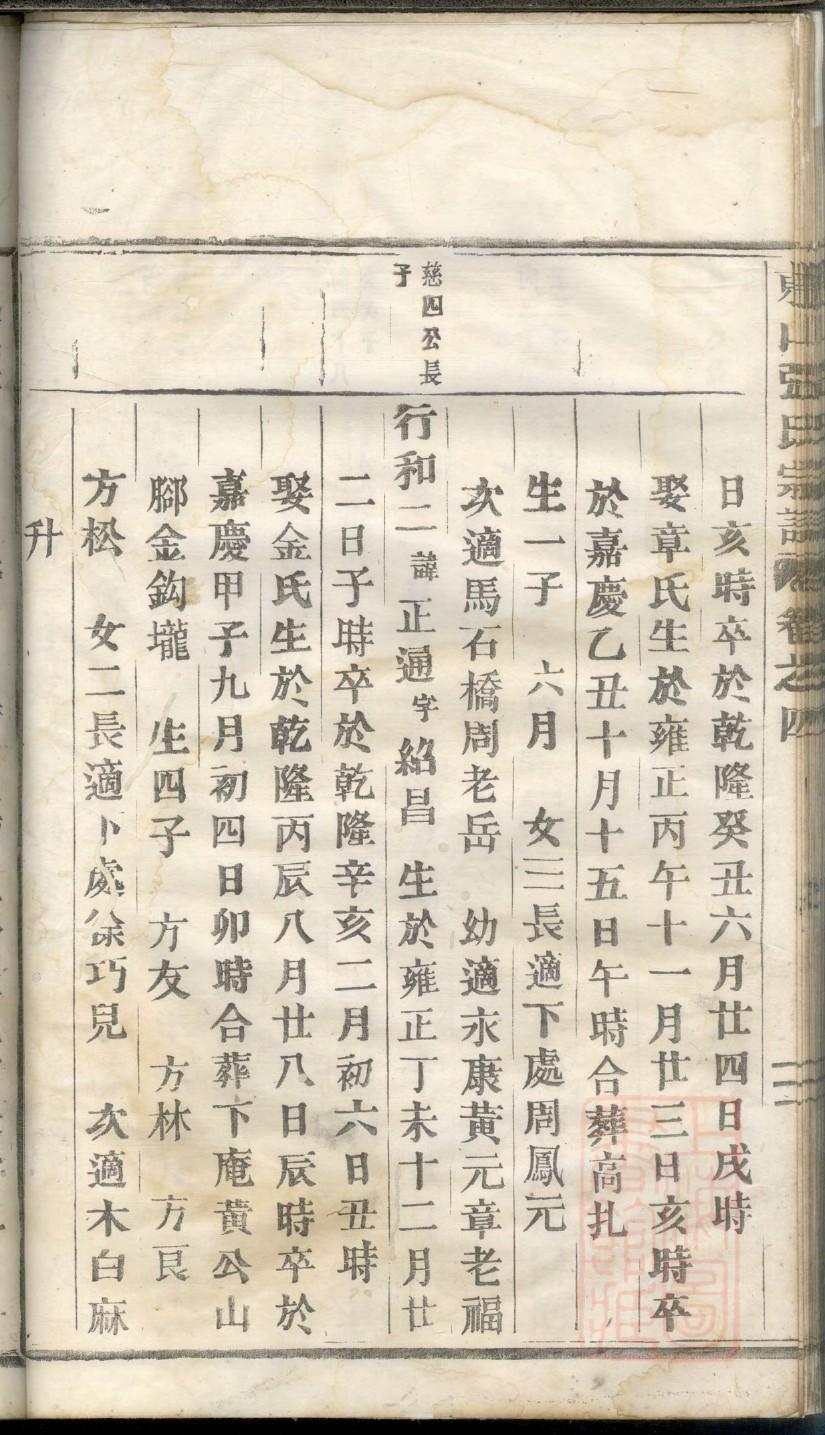 張氏宗譜
卷之四
日亥時卒於乾隆癸丑六月廿四日戌時
娶章氏生於雍正丙午十一月廿三日亥時卒
於嘉慶乙丑十月十五日午時合葬高扎
生一子 六月 女三長適下處周鳳元
次適馬石橋周老岳 幼適永康黃元章老福
慈四公長
子
行和二 諱正通 字紹昌 生於雍正丁未十二月廿
二日子時卒於乾隆辛亥二月初六日丑時
娶金氏生於乾隆丙辰八月廿八日辰時卒於
嘉慶甲子九月初四日卯時合葬下庵黃公山
腳金鈎壠 生四子 方友 方林 方良
方松 女二長適下處徐巧兒 次適木白麻
升